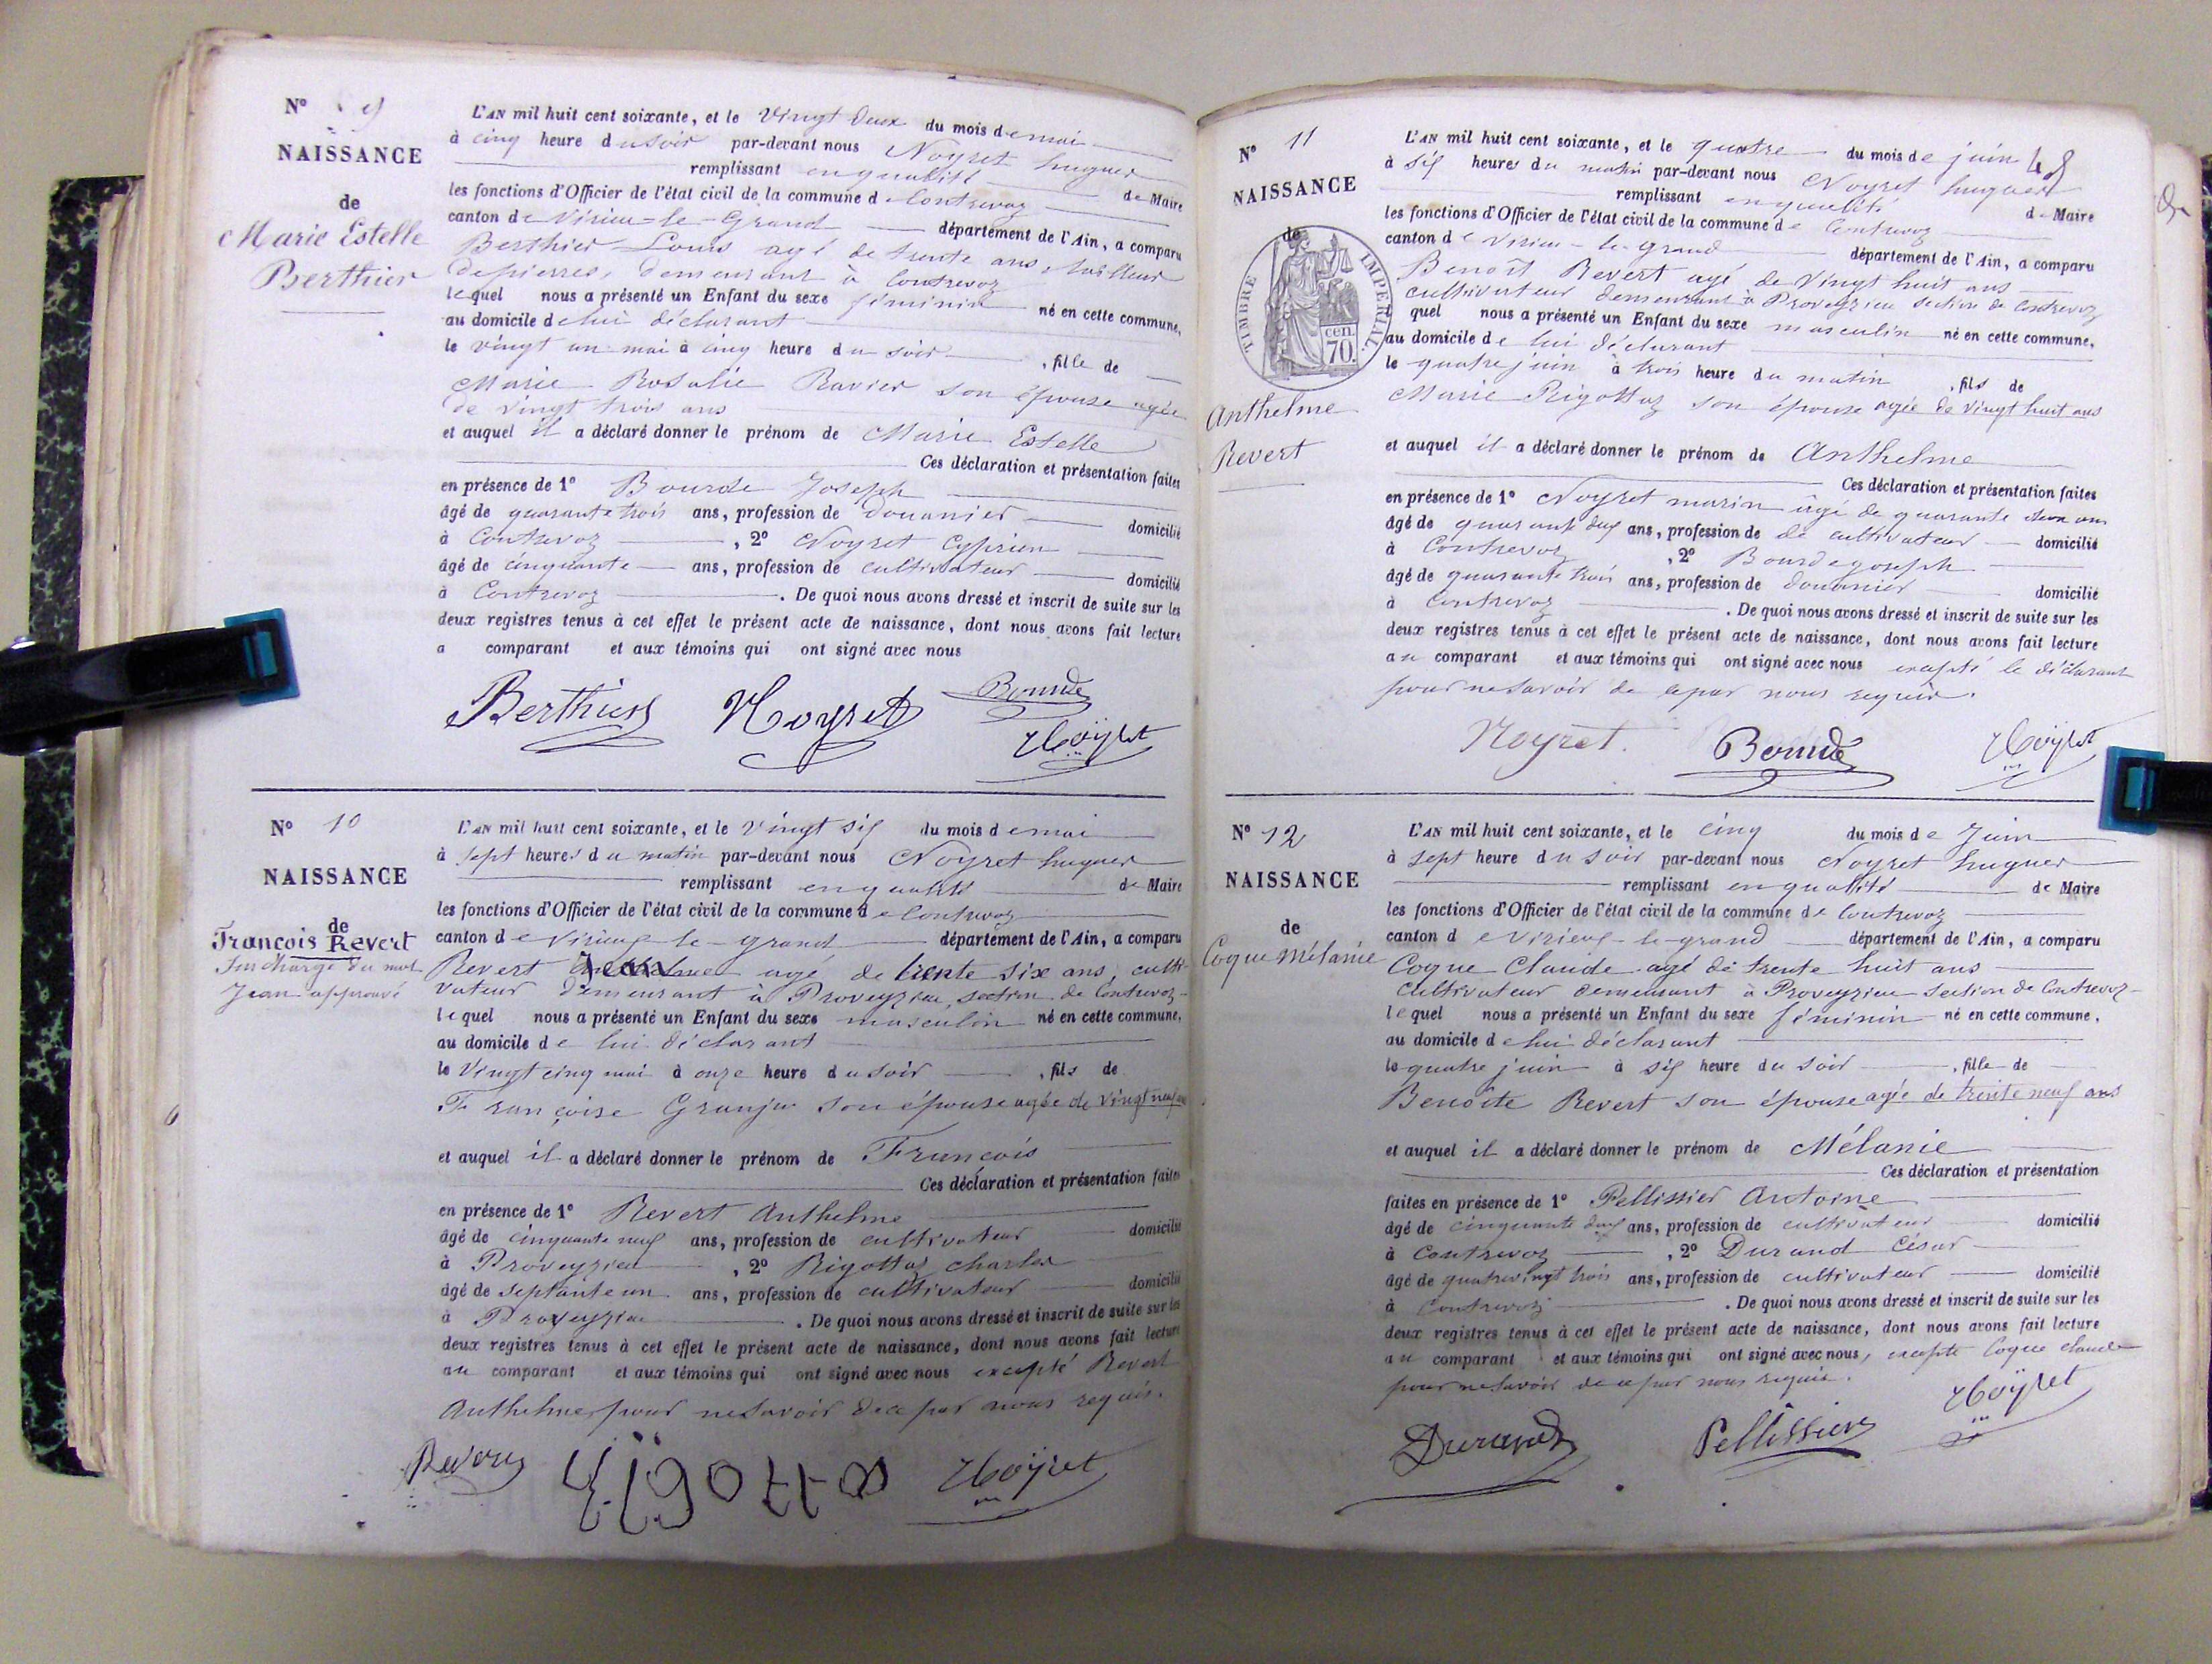 N° 9
NAISSANCE
de
Marie Estelle
Berthier
L'AN mil huit cent soixante, et le vingt deux du mois de mai
à cinq heure du soir par-devant nous Noyret hugues
remplissant en qualité de Maire
les fonctions d'Officier de l'état civil de la commune de Contrevoz
canton de Virieu-le-Grand département de l'Ain, a comparu
Berthier Louis agé de trente ans, tailleur
de pierres, demeurant à Contrevoz
lequel nous a présenté un Enfant du sexe féminin né en cette commune,
au domicile de lui déclarant
le vingt un mai à cinq heure du soir , fille de
Marie Rosalie Ravier son épouse agée
de vingt trois ans
et auquel il a déclaré donner le prénom de Marie Estelle
Ces déclaration et présentation faites
en présence de 1° Bourde Joseph
âgé de quarante trois ans, profession de douanier domicilié
à Contrevoz , 2° Noyret Cyprien
âgé de cinquante ans, profession de cultivateur domicilié
à Contrevoz . De quoi nous avons dressé et inscrit de suite sur les
deux registres tenus à cet effet le présent acte de naissance, dont nous avons fait lecture
a comparant et aux témoins qui ont signé avec nous
Berthier Noyret Bourde
Noÿret
N° 10
NAISSANCE
de
François Revert
Surcharge du mot
Jean approuvé
L'AN mil huit cent soixante, et le vingt six du mois de mai
à sept heures du matin par-devant nous Noyret hugues
remplissant en qualité de Maire
les fonctions d'Officier de l'état civil de la commune de Contrevoz
canton de Virieux le-grand département de l'Ain, a comparu
Revert Jean agé de trente six ans, culti-
vateur demeurant à Proveyzieu, section de Contrevoz
lequel nous a présenté un Enfant du sexe masculin né en cette commune,
au domicile de lui déclarant
le vingt cinq mai à onze heure du soir , fils de
Françoise Granju son épouse agée de vingt neuf ans
et auquel il a déclaré donner le prénom de François
Ces déclaration et présentation faites
en présence de 1° Revert Anthelme
âgé de cinquante neuf ans, profession de cultivateur domicilié
à Proveyzieu , 2° Rigottaz charles
âgé de septante un ans, profession de cultivateur domicilié
à Proveyzieu . De quoi nous avons dressé et inscrit de suite sur les
deux registres tenus à cet effet le présent acte de naissance, dont nous avons fait lecture
au comparant et aux témoins qui ont signé avec nous excepté Revert
Anthelme pour ne savoir de ce par nous requis.
Noÿret
N° 11
NAISSANCE
de
TIMBRE IMPERIAL
70 cen.
Anthelme
Revert
48
L'AN mil huit cent soixante, et le quatre du mois de juin
à six heures du matin par-devant nous Noyret hugues
remplissant en qualité de Maire
les fonctions d'Officier de l'état civil de la commune de Contrevoz
canton de Virieu-le-grand département de l'Ain, a comparu
Benoît Revert agé de vingt huit ans
cultivateur demeurant à Proveyzieu section de Contrevoz
quel nous a présenté un Enfant du sexe masculin né en cette commune,
au domicile de lui déclarant
le quatre juin à trois heure du matin , fils de
Marie Rigottaz son épouse agée de vingt huit ans
et auquel il a déclaré donner le prénom de Anthelme
Ces déclaration et présentation faites
en présence de 1° Noyret marin âgé de quarante deux ans
âgé de quarante deux ans, profession de de cultivateur domicilié
à Contrevoz , 2° Bourde joseph
âgé de quarante trois ans, profession de douanier domicilié
à Contrevoz . De quoi nous avons dressé et inscrit de suite sur les
deux registres tenus à cet effet le présent acte de naissance, dont nous avons fait lecture
au comparant et aux témoins qui ont signé avec nous excepté le déclarant
pour ne savoir de ce par nous requis.
Noyret. Bourde Noÿret
N° 12
NAISSANCE
de
Coque Mélanie
L'AN mil huit cent soixante, et le cinq du mois de Juin
à sept heure du soir par-devant nous Noyret hugues
remplissant en qualité de Maire
les fonctions d'Officier de l'état civil de la commune de Contrevoz
canton de Virieux-le-grand département de l'Ain, a comparu
Coque Claude agé de trente huit ans
cultivateur demeurant à Proveyzieu section de Contrevoz
lequel nous a présenté un Enfant du sexe féminin né en cette commune,
au domicile de lui déclarant
le quatre juin à six heure du soir , fille de
Benoîte Revert son épouse agée de trente neuf ans
et auquel il a déclaré donner le prénom de Mélanie
Ces déclaration et présentation
faites en présence de 1° Pellissier Antoine
âgé de cinquante deux ans, profession de cultivateur domicilié
à Contrevoz , 2° Durand César
âgé de quatrevingt trois ans, profession de cultivateur domicilié
à Contrevoz . De quoi nous avons dressé et inscrit de suite sur les
deux registres tenus à cet effet le présent acte de naissance, dont nous avons fait lecture
au comparant et aux témoins qui ont signé avec nous, excepté Coque claude
pour ne savoir de ce par nous requis.
Durand Pellissier Noÿret